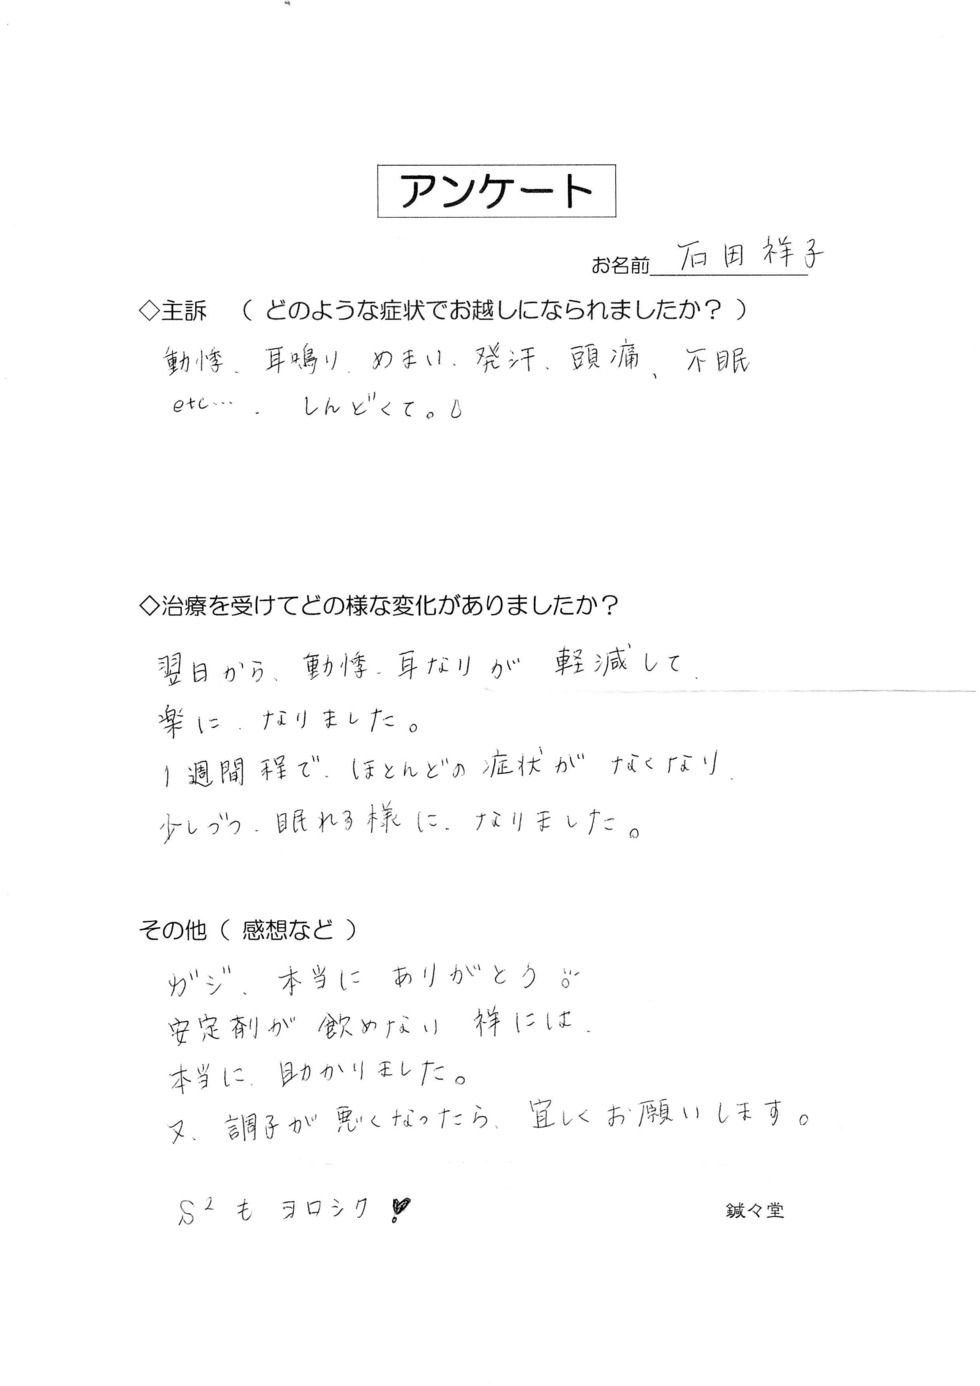 アンケート
お名前 石田祥子
◇主訴 （ どのような症状でお越しになられましたか？ ）
動悸、耳鳴り、めまい、発汗、頭痛、不眠
etc…、しんどくて。
◇治療を受けてどの様な変化がありましたか？
翌日から、動悸、耳なりが 軽減して、
楽に、なりました。
1週間程で、ほとんどの症状が なくなり、
少しづつ、眠れる様に、なりました。
その他（ 感想など ）
ガジ、本当に ありがとう
安定剤が 飲めない 祥には、
本当に、助かりました。
又、調子が 悪くなったら、宜しくお願いします。
S²も ヨロシク
鍼々堂